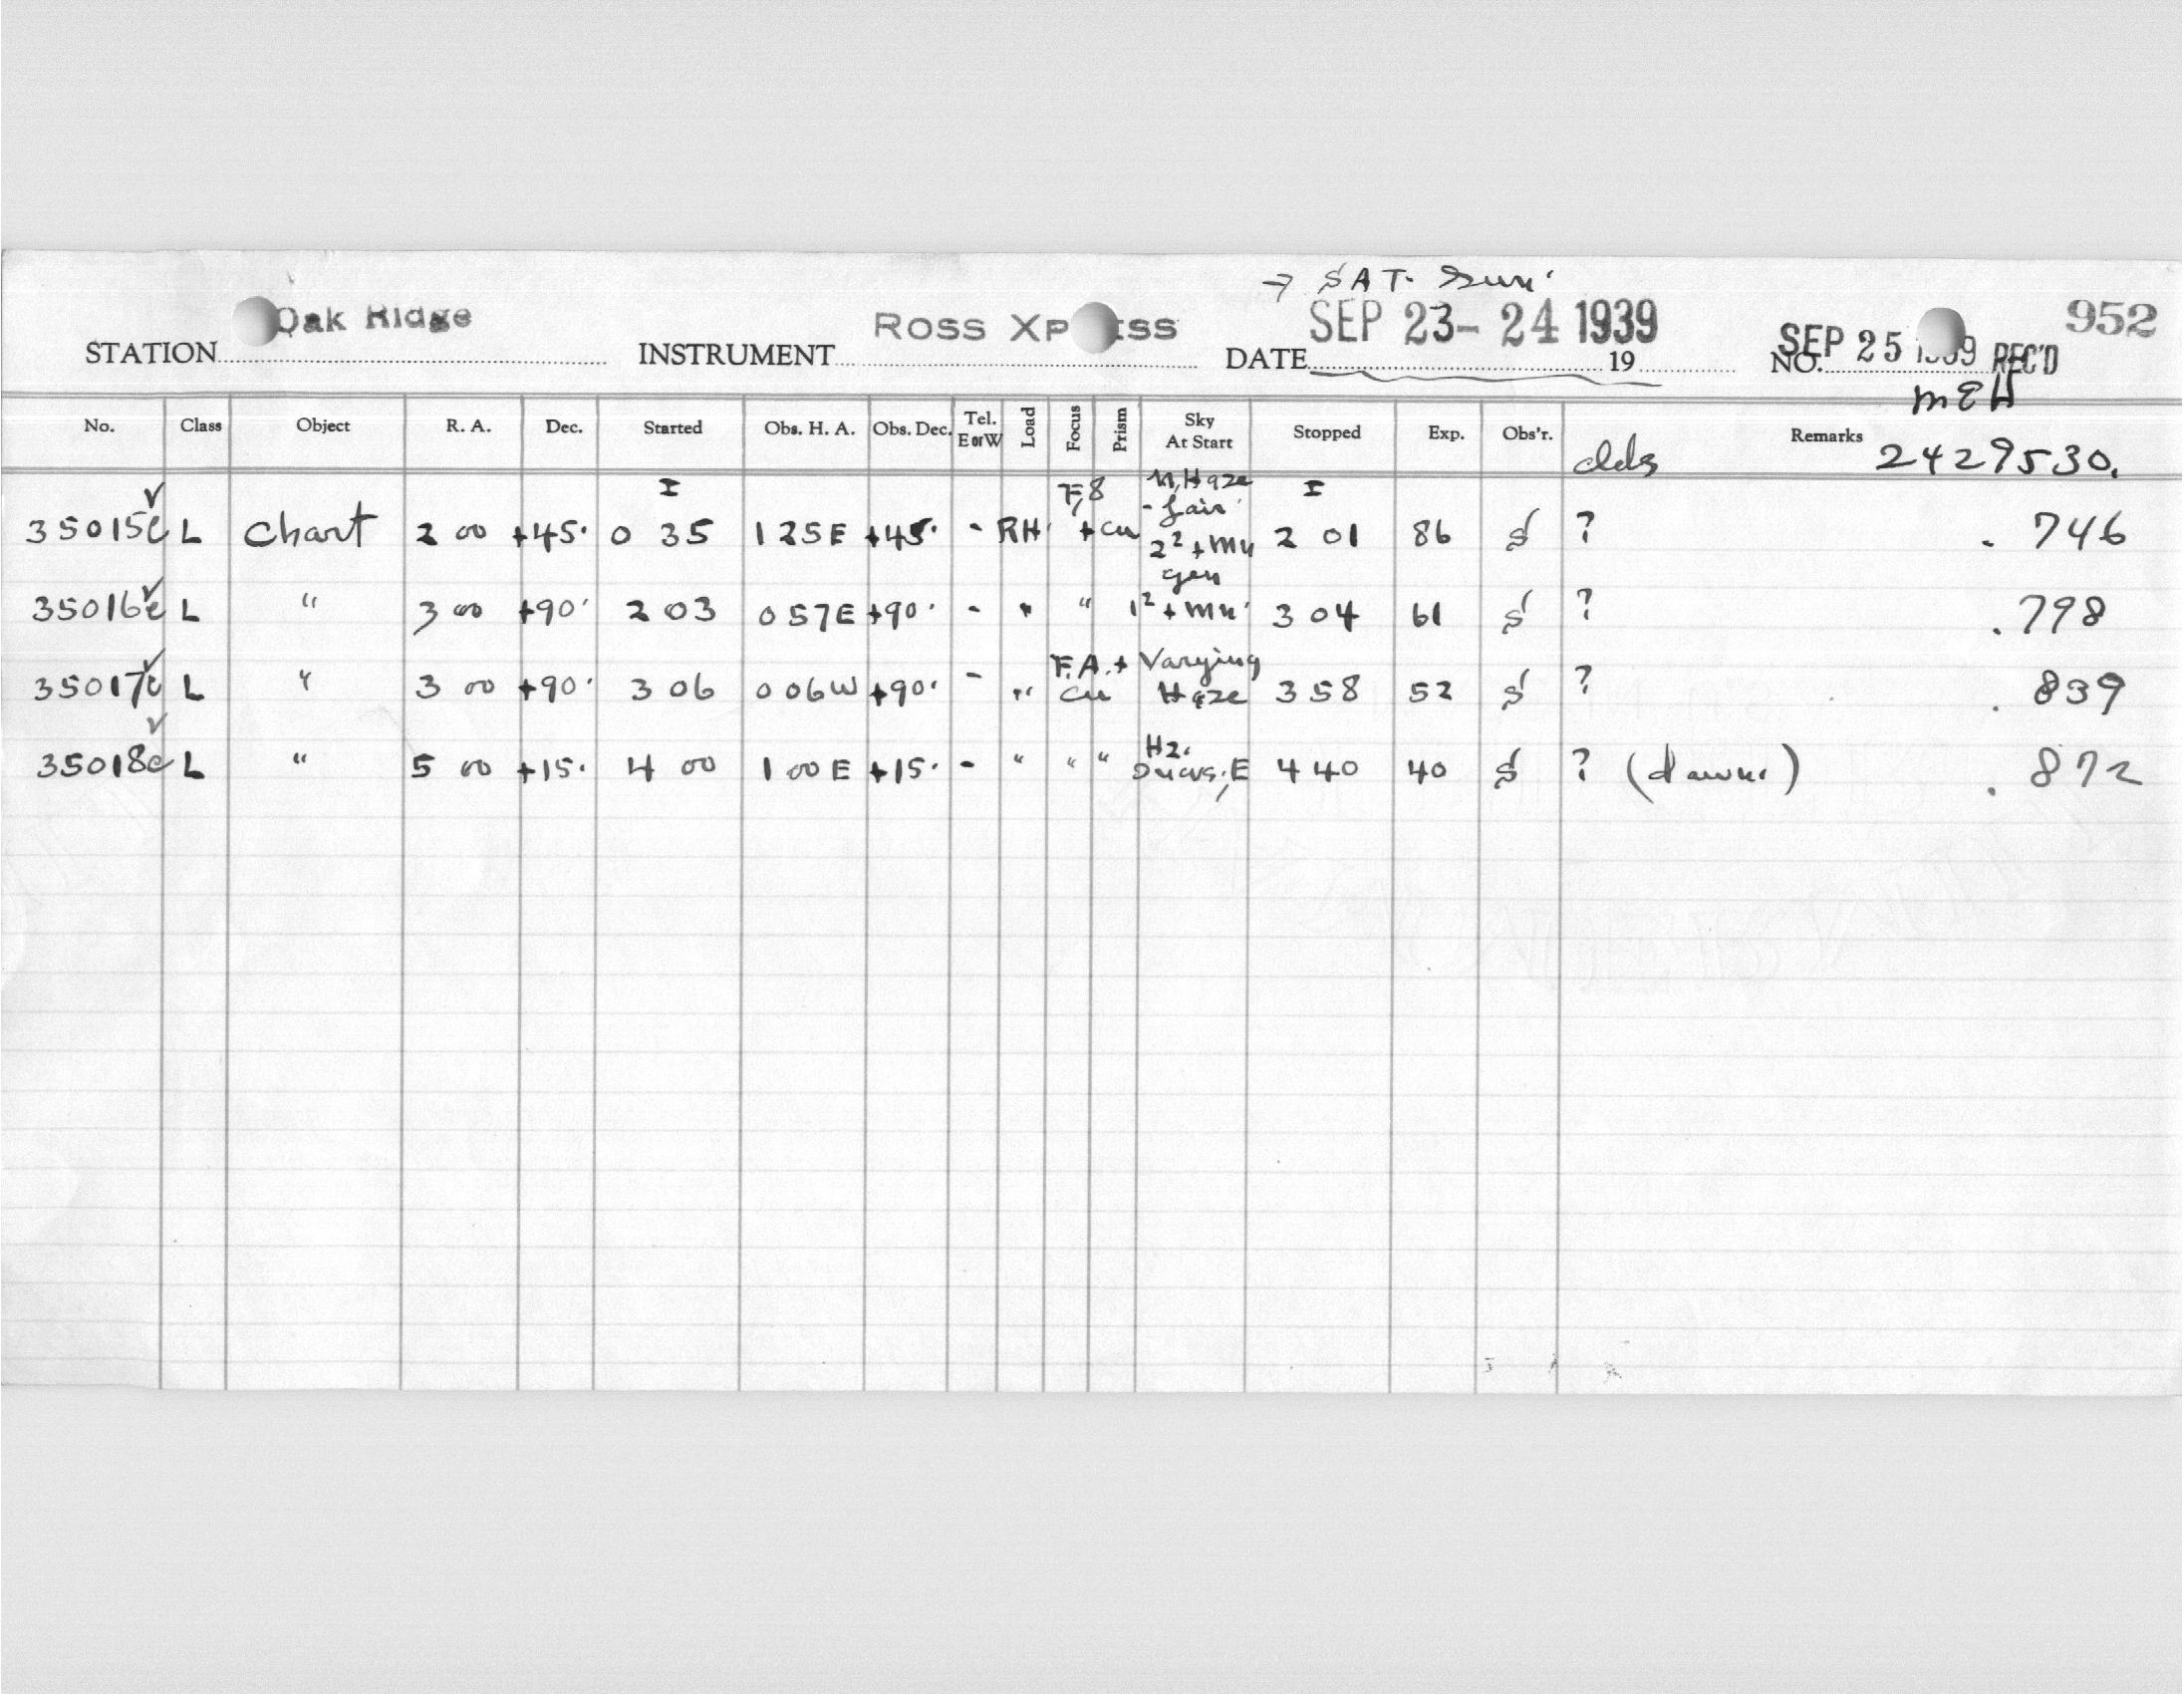 → SAT. Sun.
STATION Oak Ridge INSTRUMENT Ross Xpress DATE SEP 23-24 1939 19 NO. SEP 25 1939 REC'D 952
MEW
No. Class Object R. A. Dec. Started Obs. H. A. Obs. Dec. Tel. E or W Load Focus Prism Sky At Start Stopped Exp. Obs'r. Remarks 2429530.
I I
35015c L Chart 2 00 +45. 0 35 125E +45. - RH + Cu Haze - fair 2² + 2 01 86 S ? . 746
35016c L " 3 00 +90. 2 03 057E +90. - " " 1² + 3 04 61 S ? . 798
35017c L " 3 00 +90. 3 06 006W +90. - " F.A. + Cu Varying Haze 3 58 52 S ? . 839
35018c L " 5 00 +15. 4 00 1 00 E +15. - " " " Hz. E 4 40 40 S ? (dawn.) . 872